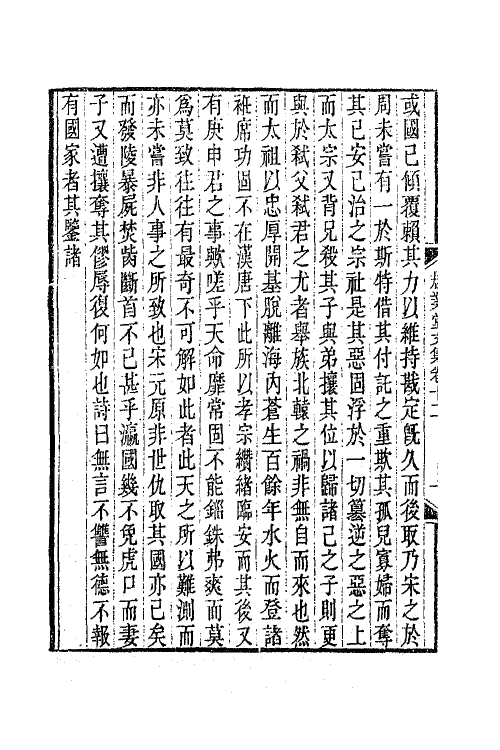 或國已傾覆賴其力以維持戡定旣久而後取乃宋之於
周未嘗有一於斯特借其付託之重欺其孤兒寡婦而奪
其已安已治之宗社是其惡固浮於一切篡逆之惡之上
而太宗又背兄殺其子與弟攘其位以歸諸己之子則更
與於弒父弒君之尤者舉族北轅之禍非無自而來也然
而太祖以忠厚開基脫離海內蒼生百餘年水火而登諸
袵席功固不在漢唐下此所以孝宗纘緒臨安而其後又
有庚申君之事歟嗟乎天命靡常固不能錙銖弗爽而莫
爲莫致往往有最奇不可解如此者此天之所以難測而
亦未嘗非人事之所致也宋元原非世仇取其國亦已矣
而發陵暴屍焚菑斷首不已甚乎瀛國幾不免虎口而妻
子又遭攘奪其僇辱復何如也詩曰無言不讐無德不報
有國家者其鑒諸
堂文集卷十二